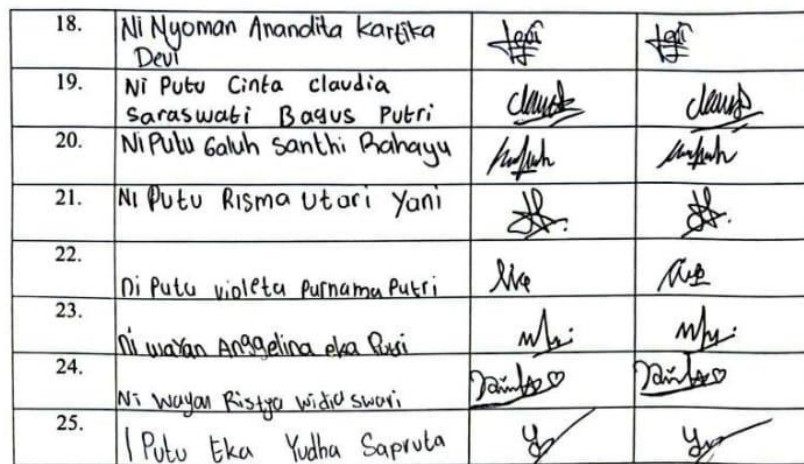 18. Ni Nyoman Anandita Kartika
Devi
19. Ni Putu Cinta claudia
Saraswati Bagus Putri
20. Ni Putu Galuh Santhi Rahayu
21. Ni Putu Risma Utari Yani
22.
Ni Putu violeta Purnama Putri
23.
Ni wayan Anggelina eka Putri
24.
Ni Wayan Ristya widia swari
25.
I Putu Eka Yudha Sapruta